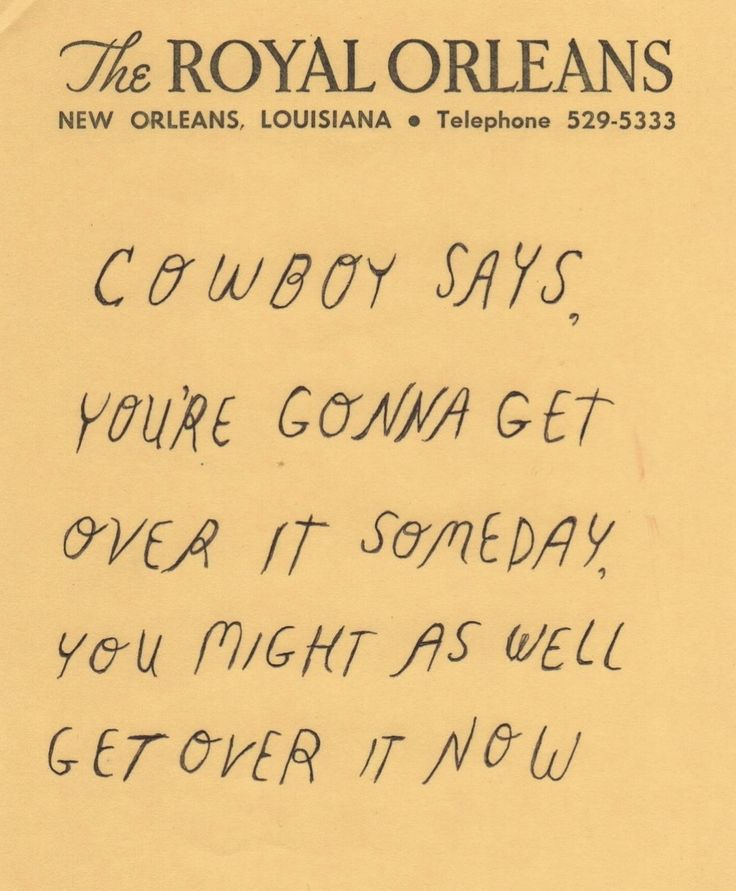 The ROYAL ORLEANS
NEW ORLEANS, LOUISIANA • Telephone 529-5333
COWBOY SAYS,
YOU'RE GONNA GET
OVER IT SOMEDAY,
YOU MIGHT AS WELL
GET OVER IT NOW